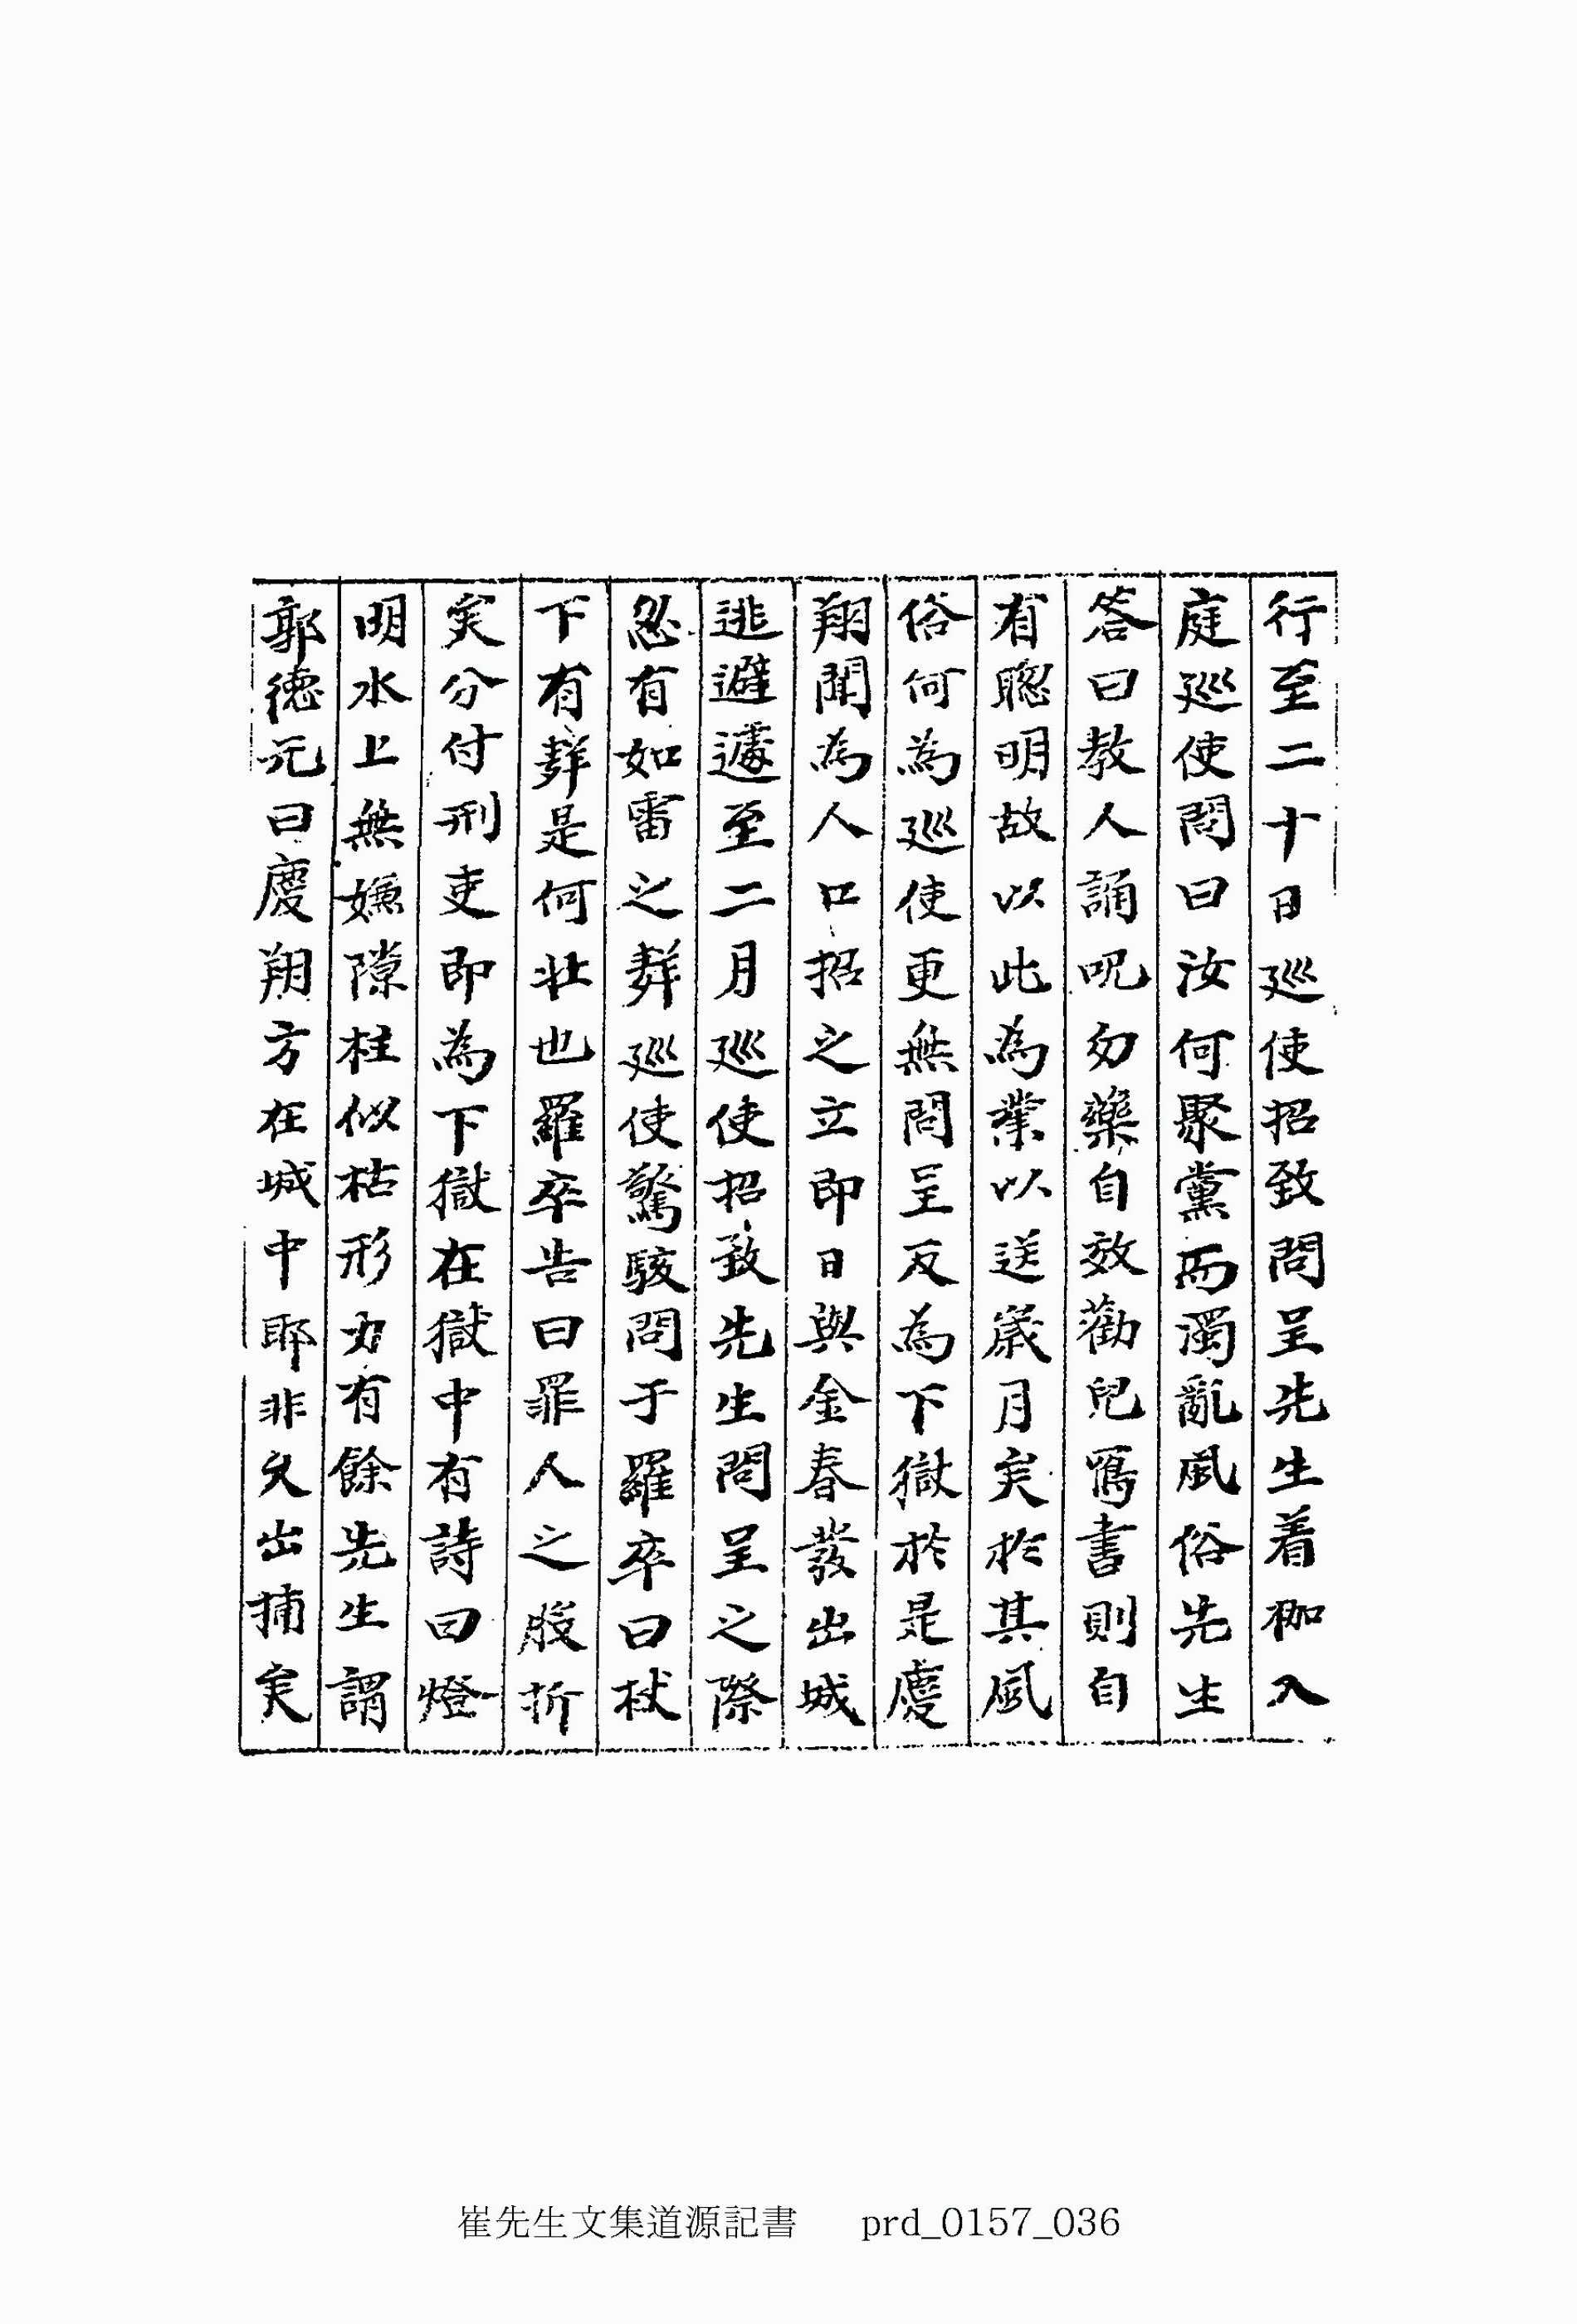 行至二十日巡使招致問呈先生着枷入
庭巡使問曰汝何聚黨而濁亂風俗先生
答曰敎人誦呪勿藥自效勸兒寫書則自
有聰明故以此為業以送歲月矣於其風
俗何為巡使更無問呈反為下獄於是慶
翔聞為人口招之立即日與金春發出城
逃避遽至二月巡使招致先生問呈之際
忽有如雷之聲巡使驚駭問于羅卒曰杖
下有聲是何壯也羅卒告曰罪人之股折
矣分付刑吏即為下獄在獄中有詩曰燈
明水上無嫌隙柱似枯形力有餘先生謂
郭德元曰慶翔方在城中耶非久出捕矣
崔先生文集道源記書 prd_0157_036